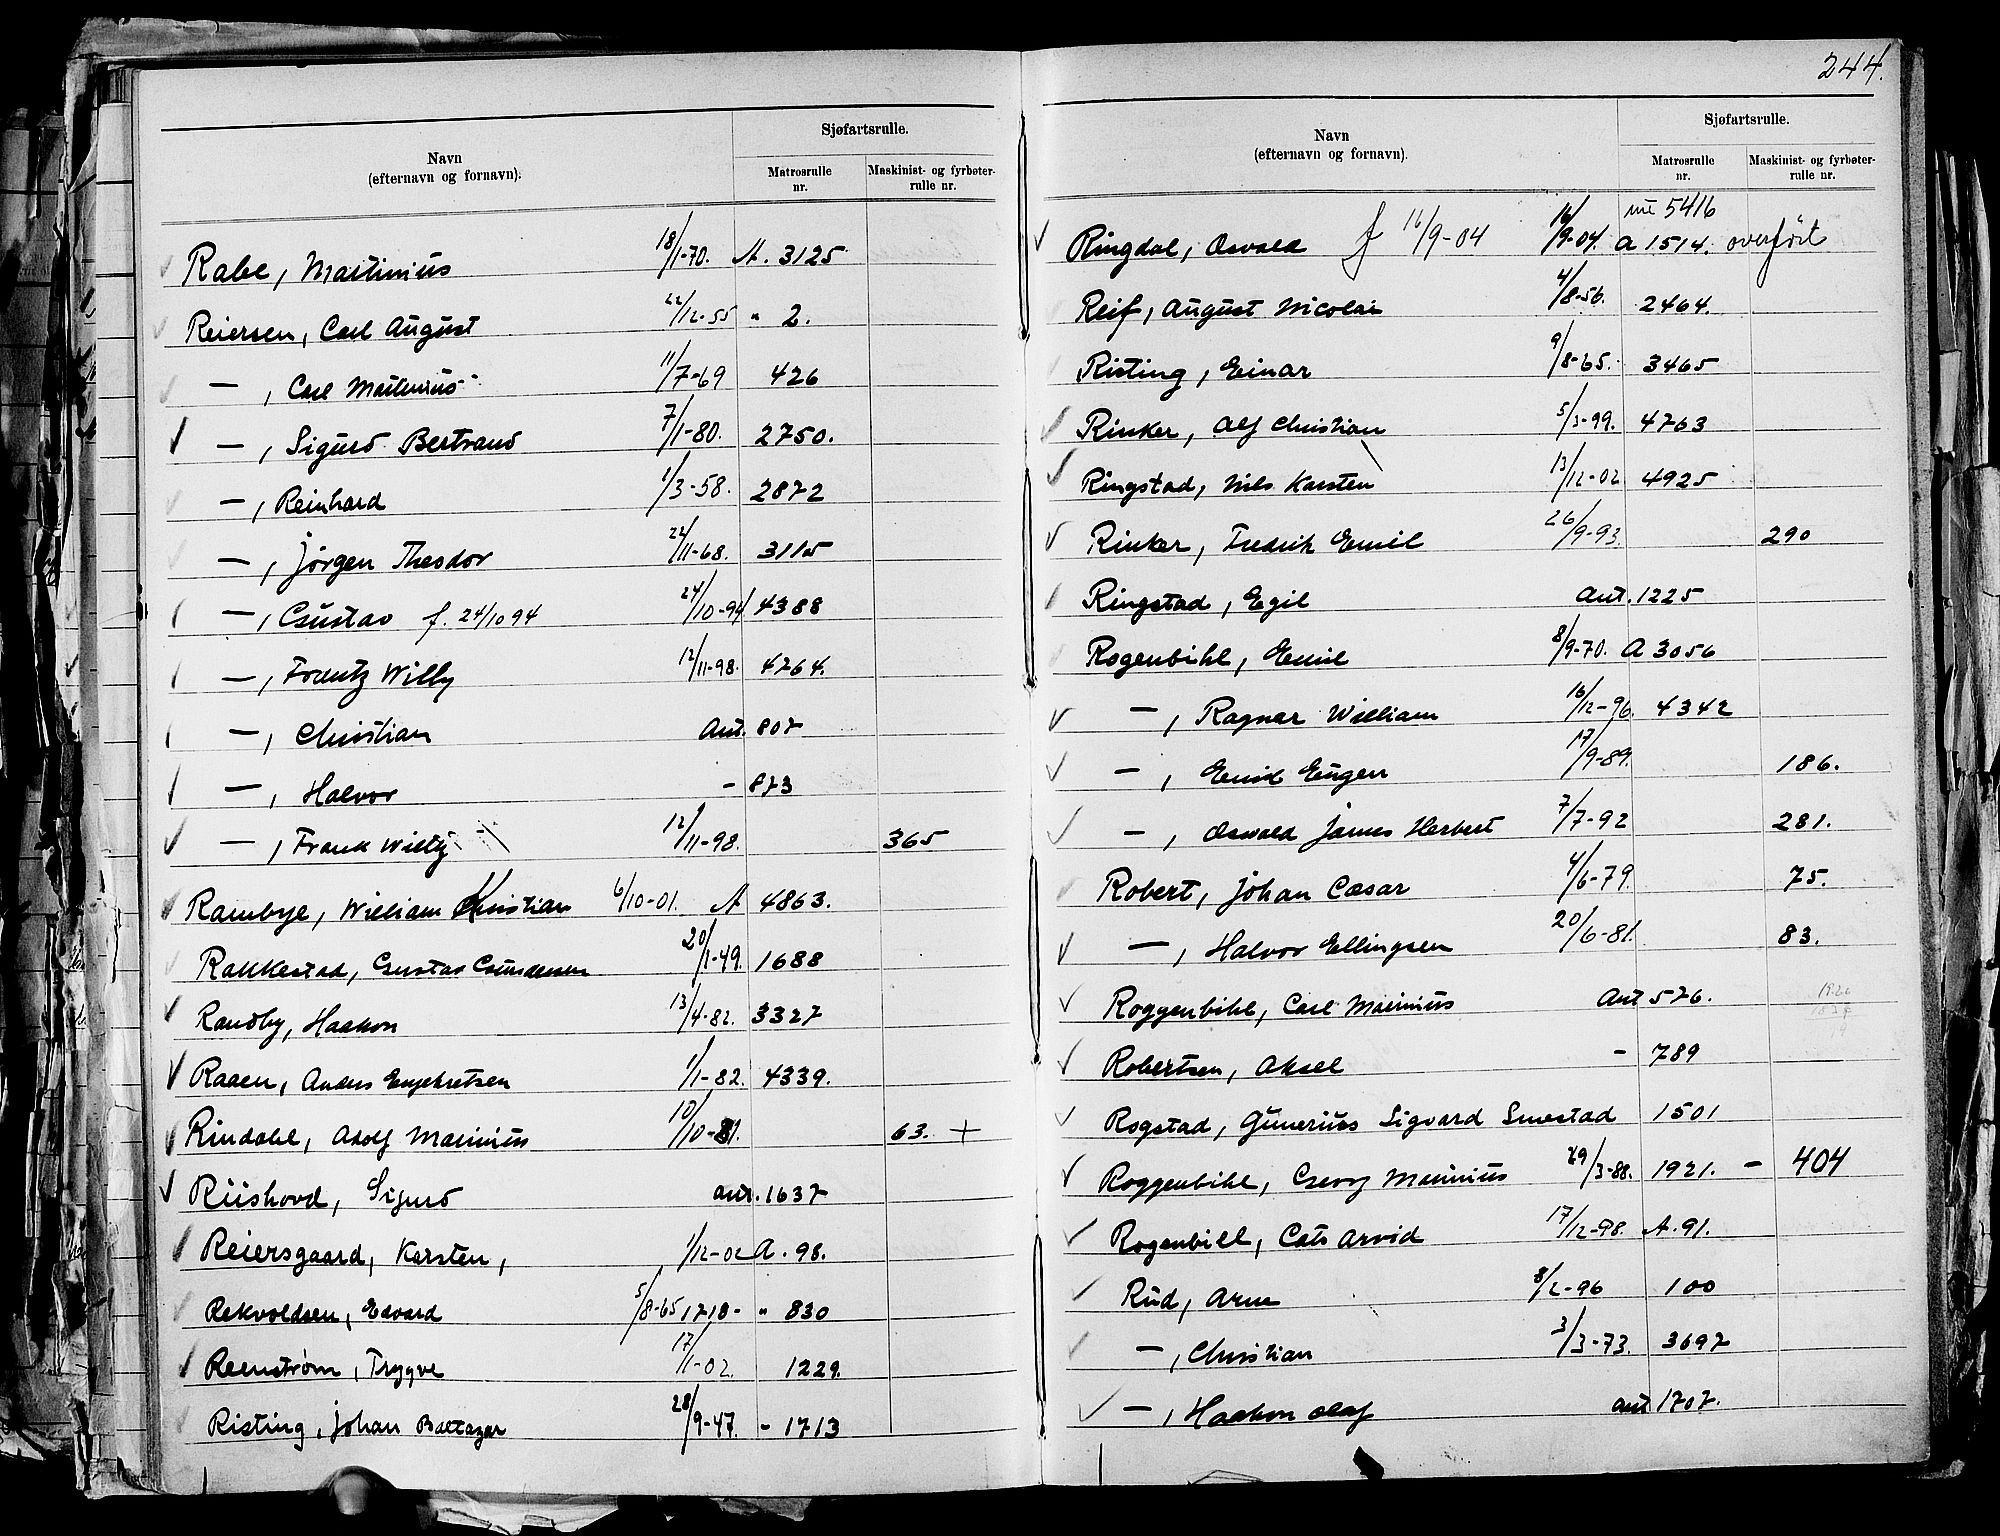 Navn
(efternavn og fornavn).
Sjøfartsrulle.
Matrosrulle nr.
Maskinist- og fyrbøter-rulle nr.
Rabe, Martinius 18/1-70. A. 3125
Reiersen, Carl August 22/12-55 " 2.
— , Carl Martinius 11/7-69 426
— , Sigurd Bertrand 7/1-80. 2750.
— , Reinhard 1/3-58. 2872
— , Jørgen Theodor 22/11-68. 3115
— , Gustav f. 24/10 94 24/10-94 4388
— , Frantz Willy 12/11-98. 4764.
— , Christian Ant. 807
— , Halvor - 873
— , Frank Willy 12/11-98. 365
Rambye, William Kristian 6/10-01. A 4863.
Rakkestad, Gustav Gundersen 20/1-49. 1688
Randby, Haakon 13/4-82. 3327
Raaen, Anders Engebretsen 1/1-82. 4339.
Rindahl, Adolf Marinius 10/10-81. 63. +
Riishovd, Sigurd ant. 1637
Reiersgaard, Karsten, 1/12-02 A. 98.
Rekvoldsen, Edvard 5/8-65 1710- " 830
Reenstrøm, Trygve 17/11-02. 1229.
Risting, Johan Baltazar 28/9-47. - 1713
244.
Navn
(efternavn og fornavn).
Sjøfartsrulle.
Matrosrulle nr.
Maskinist- og fyrbøter-rulle nr.
nu 5416
Ringdal, Osvald f 16/9-04 16/9-04. a 1514. overført
Reif, August Nicolai 4/8-56. 2464.
Risting, Einar 9/8-65. 3465
Rinker, Alf Christian 5/3-99. 4763
Ringstad, Nils Karsten 13/12-02 4925
Rinker, Fredrik Emil 26/9-93. 290
Ringstad, Egil Ant. 1225
Rogenbihl, Emil 8/9-70. A 3056
— , Ragnar William 16/12-96. 4342
— , Emil Eugen 17/9-89. 186.
— , Oswald James Herbert 7/7-92 281.
Robert, Johan Cæsar 4/6-79. 75.
— , Halvor Ellingsen 20/6-81. 83.
Roggenbihl, Carl Marinius Ant 576.
Robertsen, Aksel - 789
Rogstad, Gunerius Sigvard Smestad 1501
Roggenbihl, Georg Marinius 29/3-88. 1921. - 404
Rogenbill, Cato Arvid 17/12-98. A. 91.
Rud, Arne 8/2-96 100
— , Christian 3/3-73. 3697
— , Haakon Olaf ant 1707.